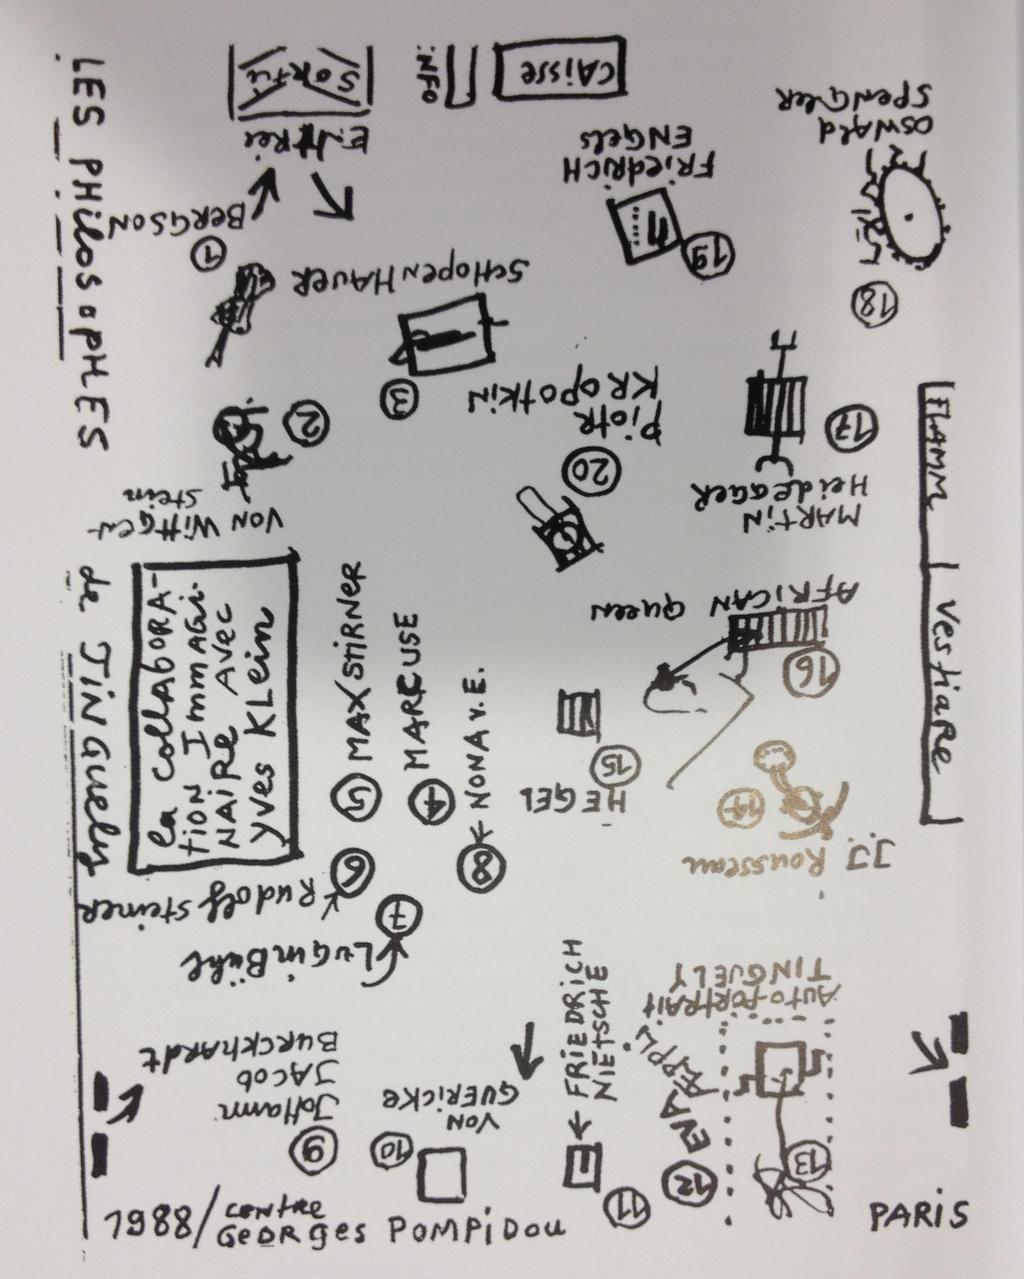 LES PHilosopHES de TiNGuely
Sortie
ENtRei
iNFO
CAisse
BERGSON
1
SCHOPENHAUER
3
2
VON WittGEN-
Stein
FRiEdRiCH
ENGEls
19
OSWAld
SPENGlER
18
Piotr
KROPOTKiN
20
17
MARTiN
HeidEGGER
FLAMM
Vestiare
la CollABORA-
tion Immagi-
NAiRE AVEC
YVES KLEin
5 MAX STIRNER
4 MARCUSE
8 NONA v.E.
6 Rudolf Steiner
7 LuGinBühl
AFRICAN Queen
16
15
HEGEL
14
JJ Rousseau
JoHann
JACOB
BURCKHARDT
9
VON
GUERICKE
10
FRIEDRICH
NIETSCHE
11
12 EVA ÆPPLi
AUTO-PORTRAIT
TINGUELY
13
1988/CENTRE
GEORGES POMPIDOU
PARIS